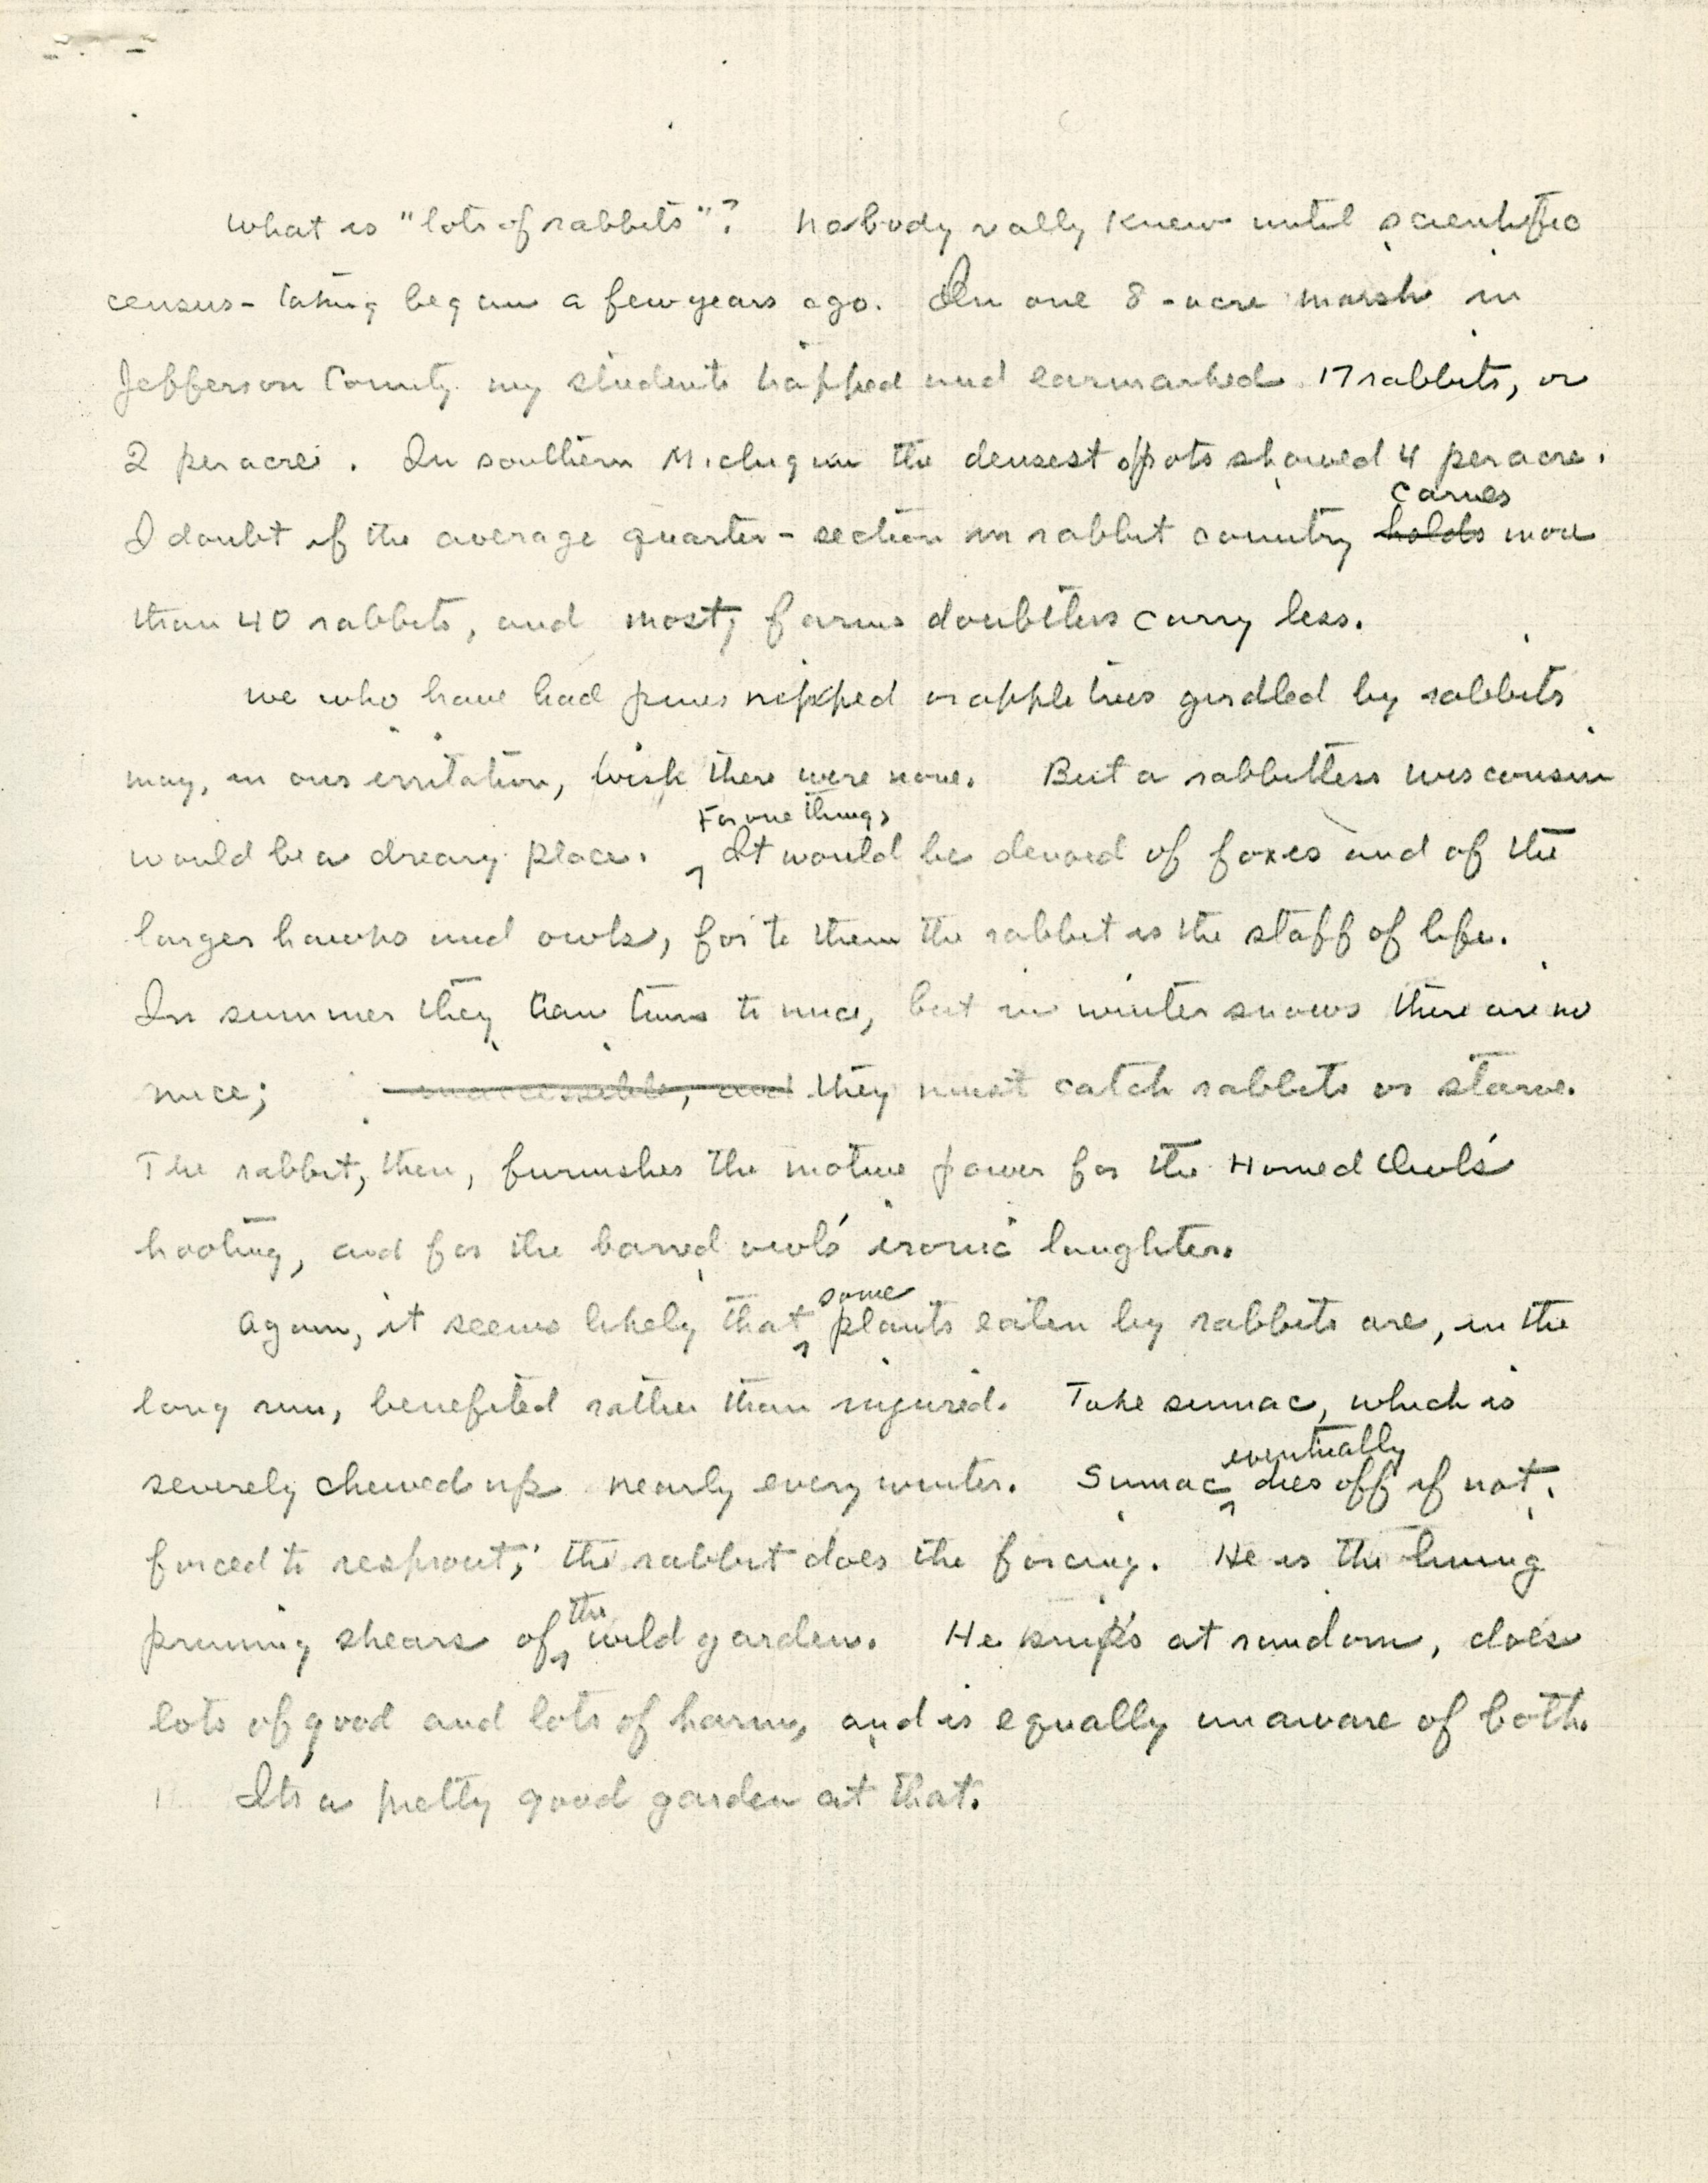 What is "lots of rabbits"? Nobody really knew until scientific
census-taking began a few years ago. In one 8-acre marsh in
Jefferson County my students trapped and earmarked 17 rabbits, or
2 per acre. In southern Michigan the densest spots showed 4 per acre.
carries
I doubt if the average quarter-section in rabbit country holds more
than 40 rabbits, and most farms doubtless carry less.
We who have had pines nipped or apple trees girdled by rabbits
may, in our irritation, wish there were none. But a rabbitless Wisconsin
For one thing,
would be a dreary place. It would be devoid of foxes and of the
larger hawks and owls, for to them the rabbit is the staff of life.
In summer they can turn to mice, but in winter snows there are no
mice; inaccessible, and they must catch rabbits or starve.
The rabbit, then, furnishes the motive power for the Horned Owl's
hooting, and for the barred owl's ironic laughter.
some
Again, it seems likely that plants eaten by rabbits are, in the
long run, benefited rather than injured. Take sumac, which is
eventually
severely chewed up nearly every winter. Sumac dies off if not
forced to resprout; the rabbit does the forcing. He is the living
the
pruning shears of wild garden. He snips at random, does
lots of good and lots of harm, and is equally unaware of both.
Its a pretty good garden at that.